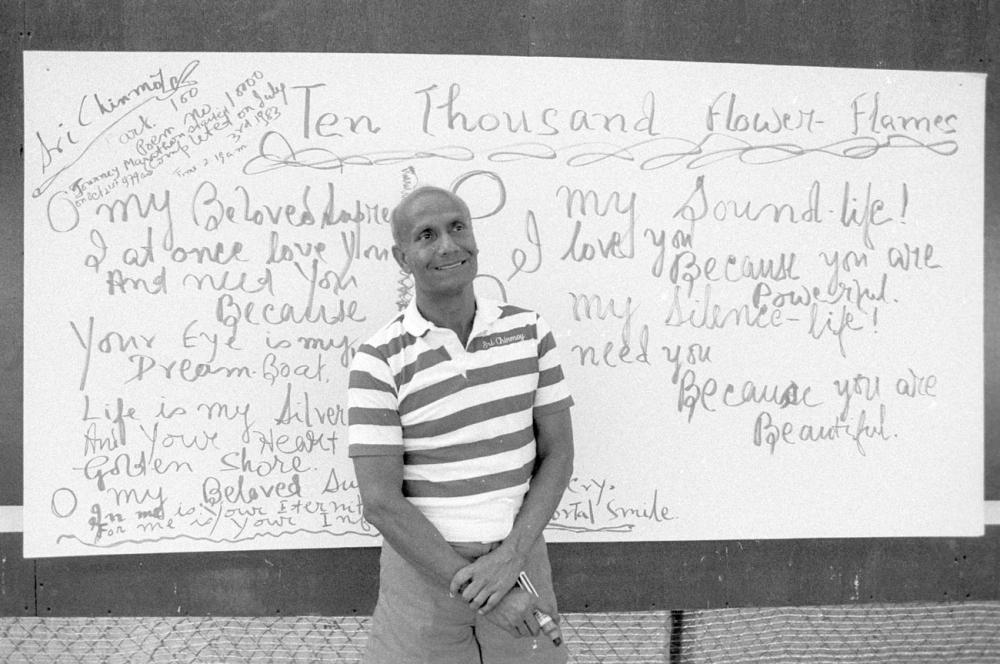 Sri Chinmoy
100
art.
Poem No 10000
Journey Marathon started
on Oct 21st 1979 and completed on July
3rd 1983
Time 2 19 am
Ten Thousand Flower-Flames
O my Beloved Supre
I at once love You
And need You
Because
Your Eye is my
Dream-Boat,
Life is my Silver
And Your Heart
Golden Shore.
O my Beloved Su
In me is Your Eternit Cry.
For me is Your Inf ortal Smile.
O my Sound-life!
I love you
Because you are
Powerful.
O my Silence-life!
need you
Because you are
Beautiful.
Sri Chinmoy